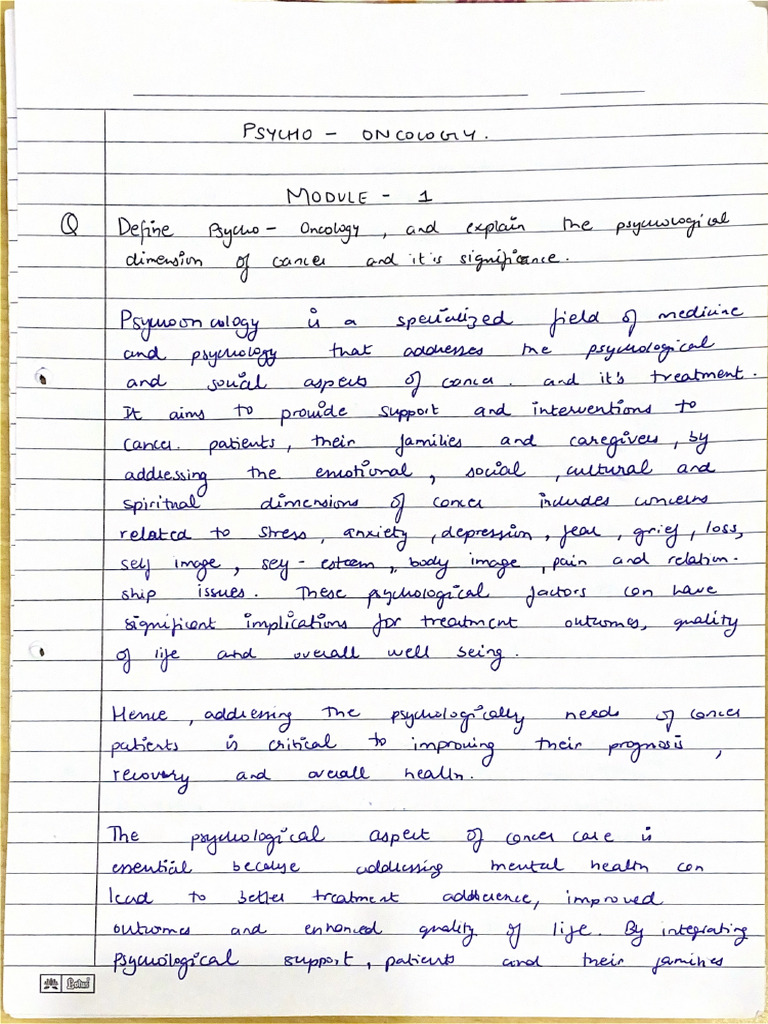 PSYCHO - ONCOLOGY.
MODULE - 1
Q Define Psycho - Oncology, and explain the psychological
dimension of cancer and it is significance.
Psychooncology is a specialized field of medicine
and psychology that addresses the psychological
and social aspects of cancer. and it's treatment.
It aims to provide support and interventions to
cancer patients, their families and caregivers, by
addressing the emotional, social, cultural and
spiritual dimensions of cancer includes concerns
related to stress, anxiety, depression, fear, grief, loss,
self image, self-esteem, body image, pain and relation-
ship issues. These psychological factors can have
significant implications for treatment outcomes, quality
of life and overall well being.
Hence, addressing the psychologically needs of cancer
patients is critical to improving their prognosis,
recovery and overall health.
The psychological aspect of cancer care is
essential because addressing mental health can
lead to better treatment adherence, improved
outcomes and enhanced quality of life. By integrating
psychological support, patients and their families